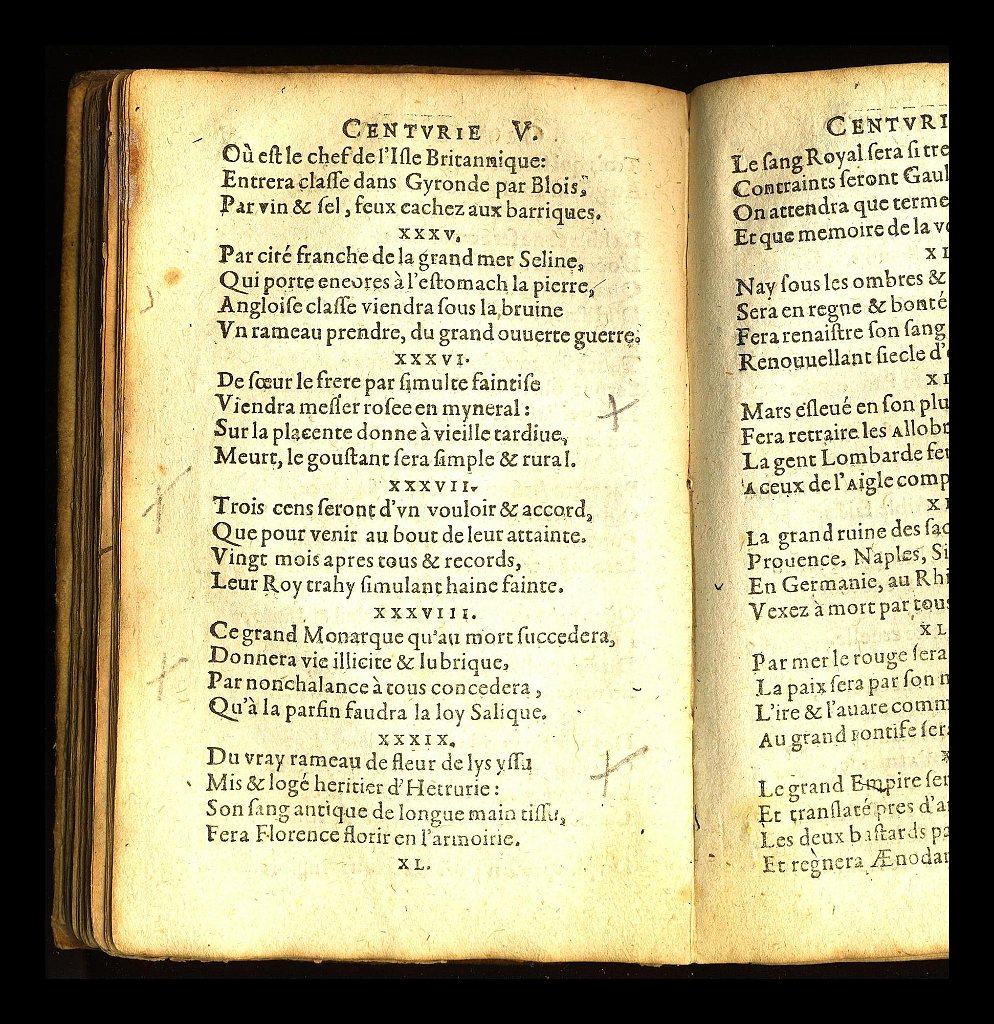 CENTVRIE V.
Où eſt le chef de l'Iſle Britannique:
Entrera claſſe dans Gyronde par Blois,
Par vin & ſel, feux cachez aux barriques.
XXXV.
Par cité franche de la grand mer Seline,
Qui porte encores à l'eſtomach la pierre,
Angloiſe claſſe viendra ſous la bruine
Vn rameau prendre, du grand ouuerte guerre.
XXXVI.
De ſœur le frere par ſimulte faintiſe
Viendra meſler roſee en myneral:
Sur la placente donne à vieille tardiue,
Meurt, le gouſtant ſera ſimple & rural.
XXXVII.
Trois cens ſeront d'vn vouloir & accord,
Que pour venir au bout de leur attainte.
Vingt mois apres tous & records,
Leur Roy trahy ſimulant haine fainte.
XXXVIII.
Ce grand Monarque qu'au mort ſuccedera,
Donnera vie illicite & lubrique,
Par nonchalance à tous concedera,
Qu'à la parfin faudra la loy Salique.
XXXIX.
Du vray rameau de fleur de lys yſſu
Mis & logé heritier d'Hetrurie:
Son ſang antique de longue main tiſſu,
Fera Florence florir en l'armoirie.
XL.
CENTVRI
Le ſang Royal ſera ſi tre
Contraints ſeront Gaul
On attendra que terme
Et que memoire de la v
XL
Nay ſous les ombres &
Sera en regne & bonté
Fera renaiſtre ſon ſang
Renouuellant ſiecle d'
XL
Mars eſleué en ſon plu
Fera retraire les Allobr
La gent Lombarde fe
A ceux de l'Aigle comp
XL
La grand ruine des ſac
Prouence, Naples, Si
En Germanie, au Rhi
Vexez à mort par tous
XL
Par mer le rouge ſera
La paix ſera par ſon n
L'ire & l'auare comm
Au grand Pontife ſer
X
Le grand Empire ſer
Et tranſlaté pres d'a
Les deux baſtards pa
Et regnera Ænodar